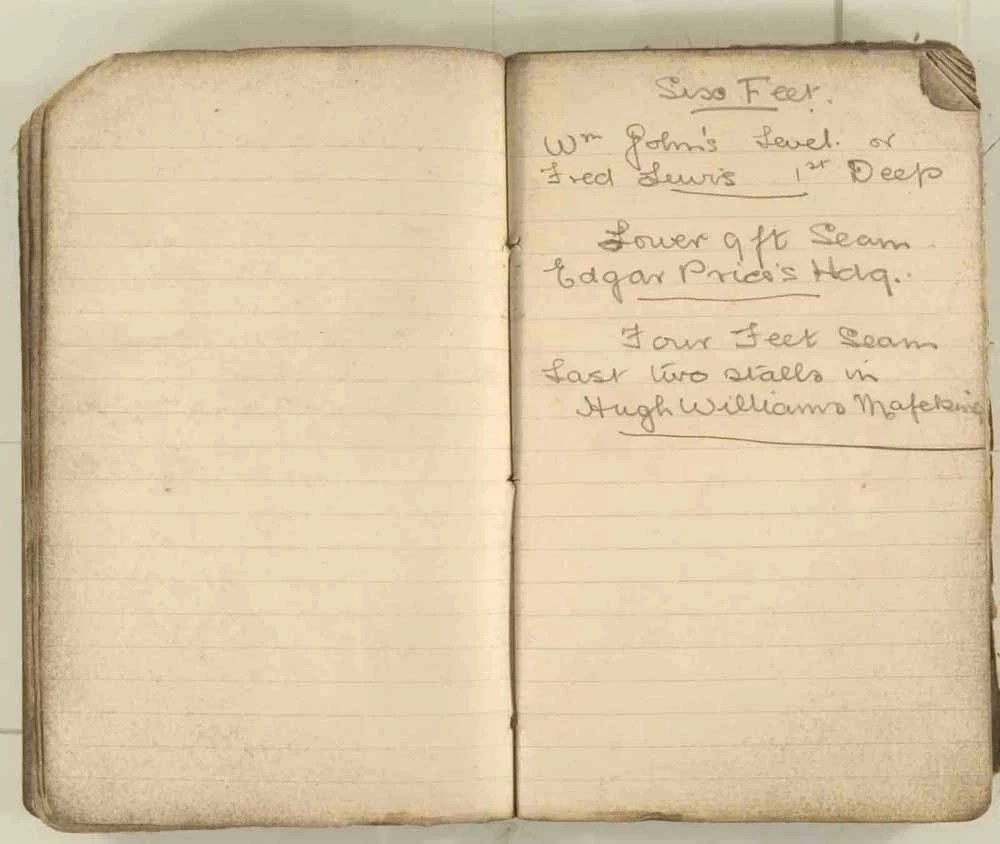 Six Feet.
Wm John's Level. or
Fred Lewis 1st Deep
Lower 9 ft Seam
Edgar Price's Hdg.
Four Feet Seam
Last two stalls in
Hugh Williams Mafeking